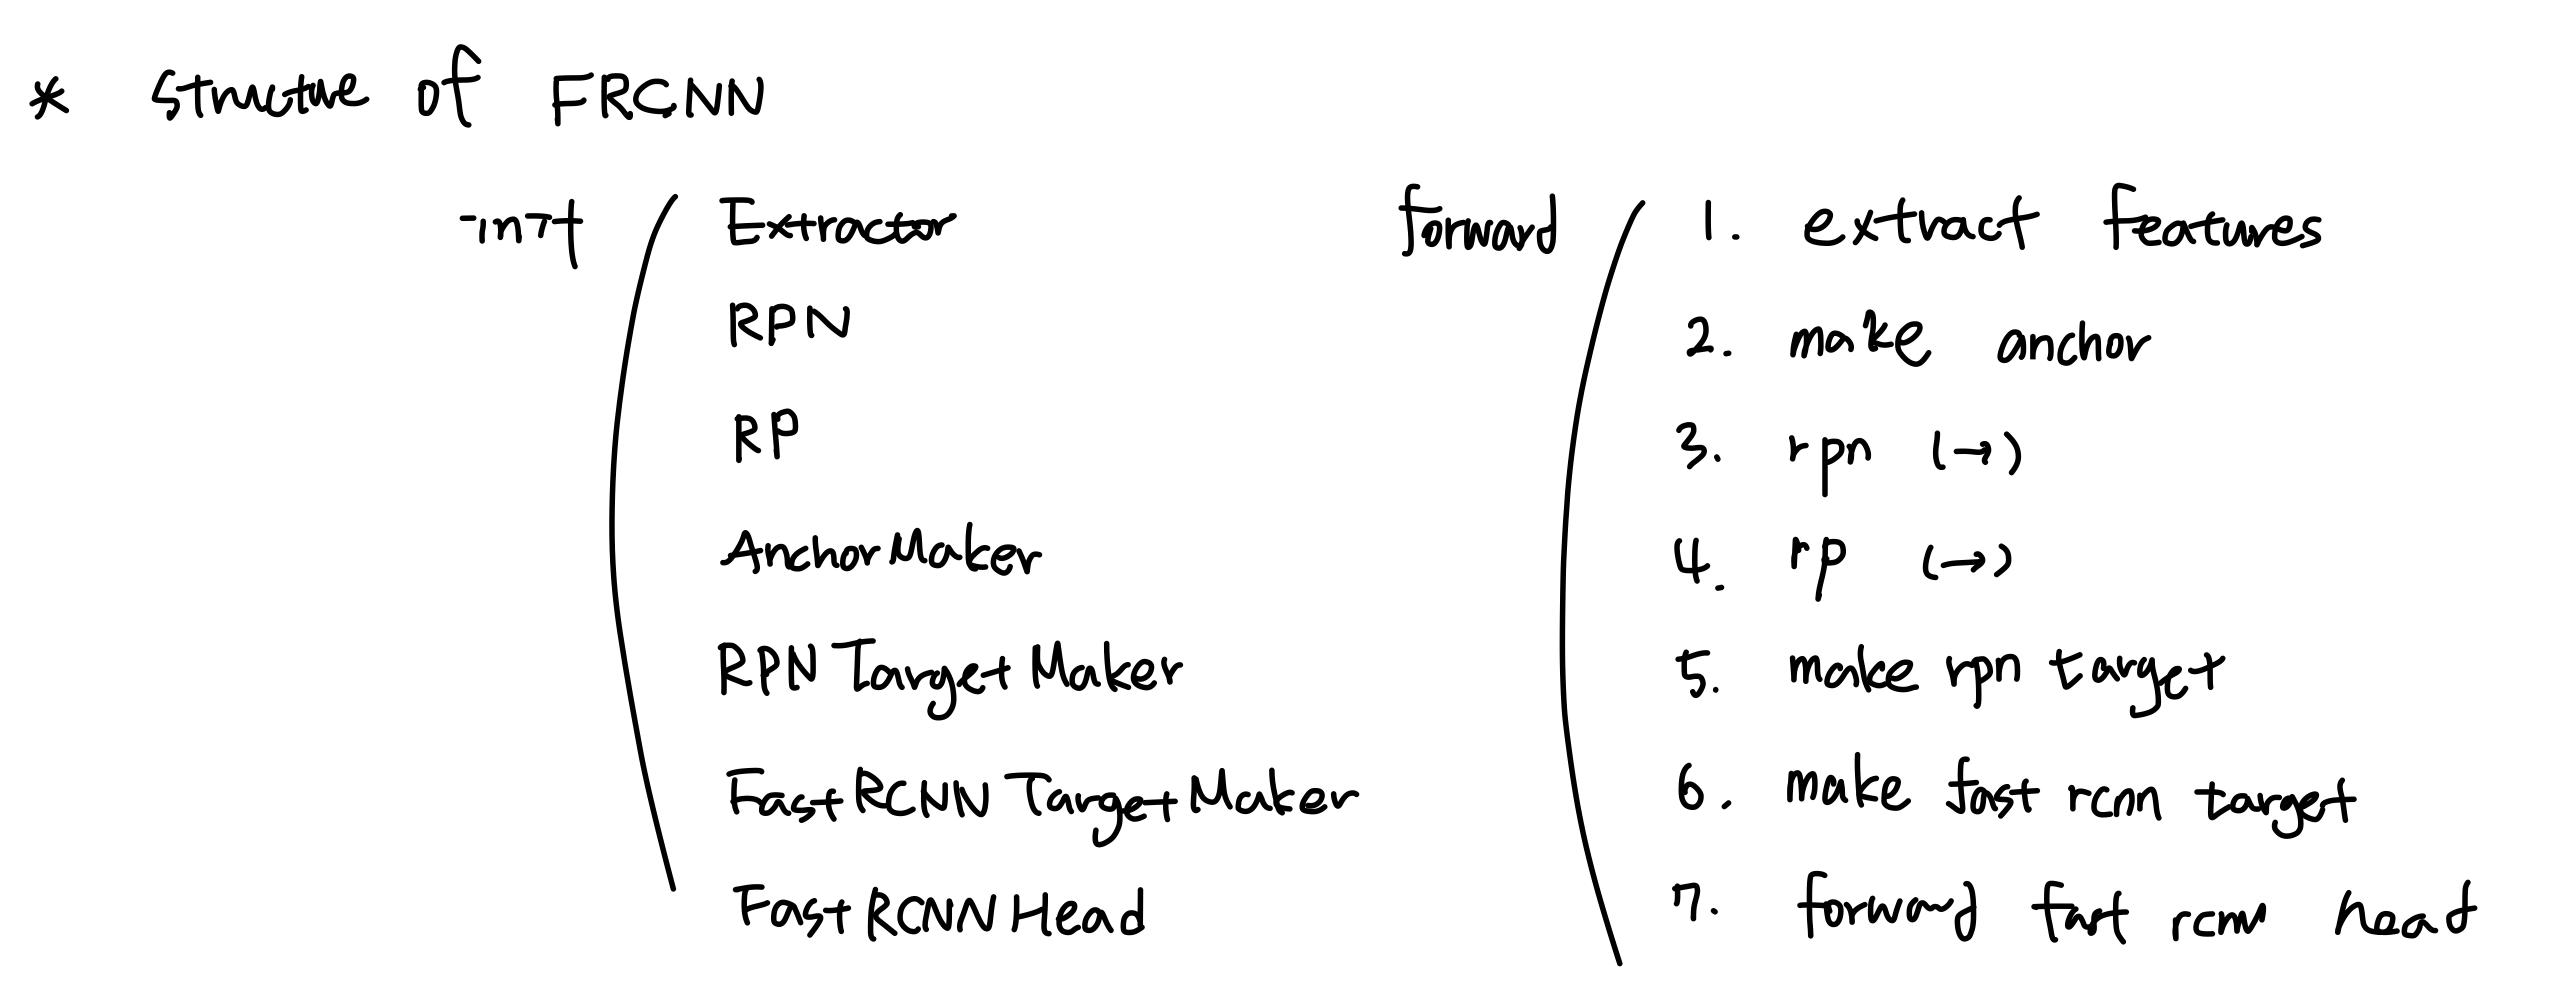 * structure of FRCNN
init
Extractor
RPN
RP
AnchorMaker
RPN Target Maker
FastRCNN Target Maker
FastRCNN Head
forward
1. extract features
2. make anchor
3. rpn (→)
4. rp (→)
5. make rpn target
6. make fast rcnn target
7. forward fast rcnn head